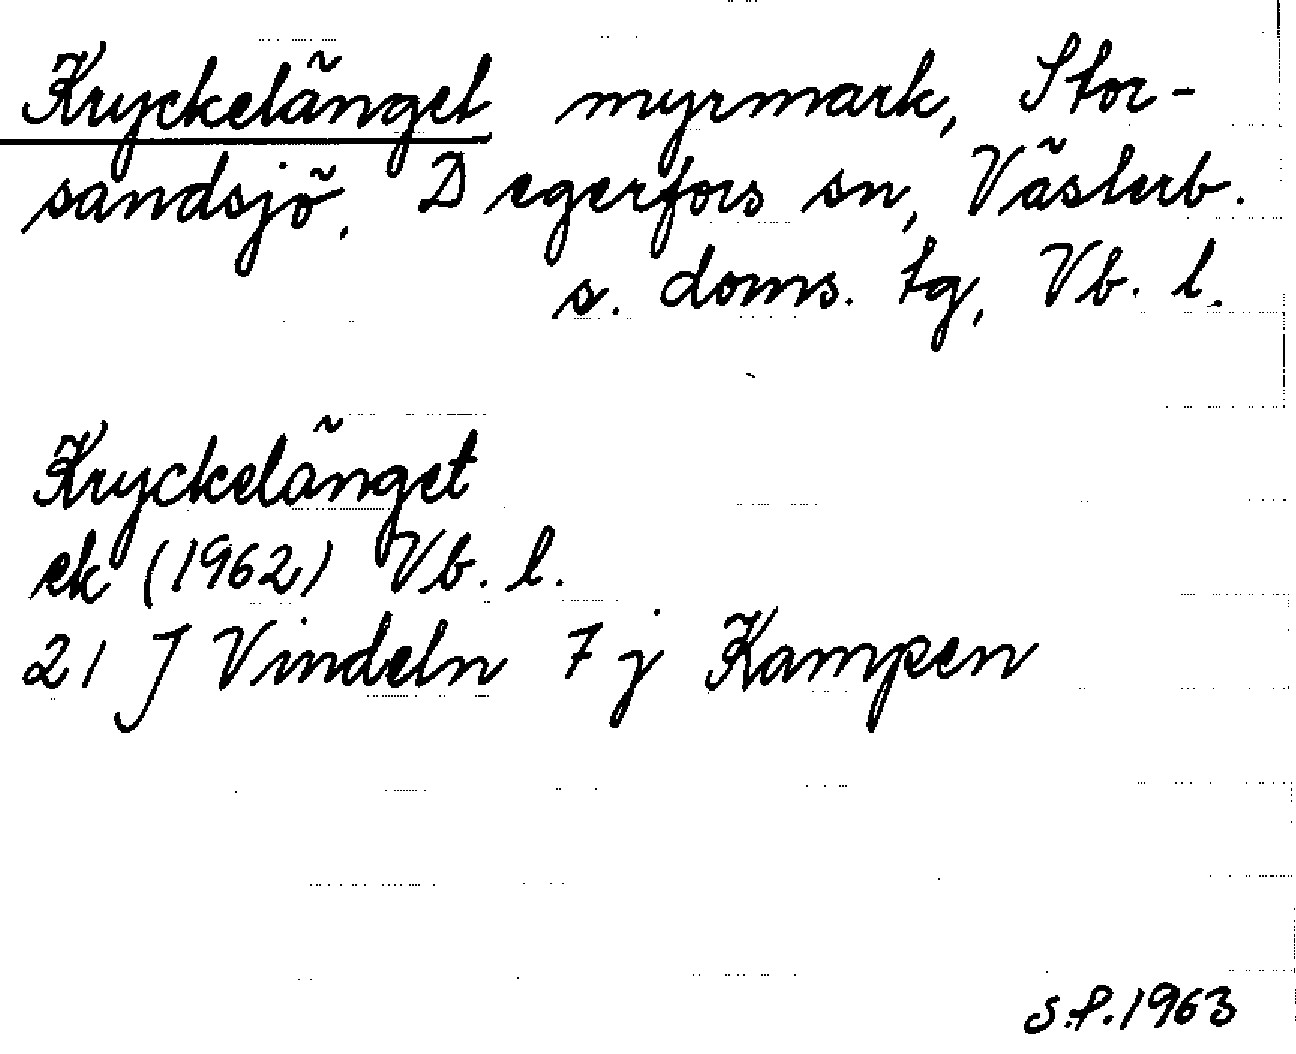 Kryckelänget myrmark, Stor-
sandsjö, Degerfors sn, Västerb.
s. doms. tg, Vb. l.
Kryckelänget
ek (1962) Vb. l.
21 J Vindeln 7 j Kampen
S.P. 1963